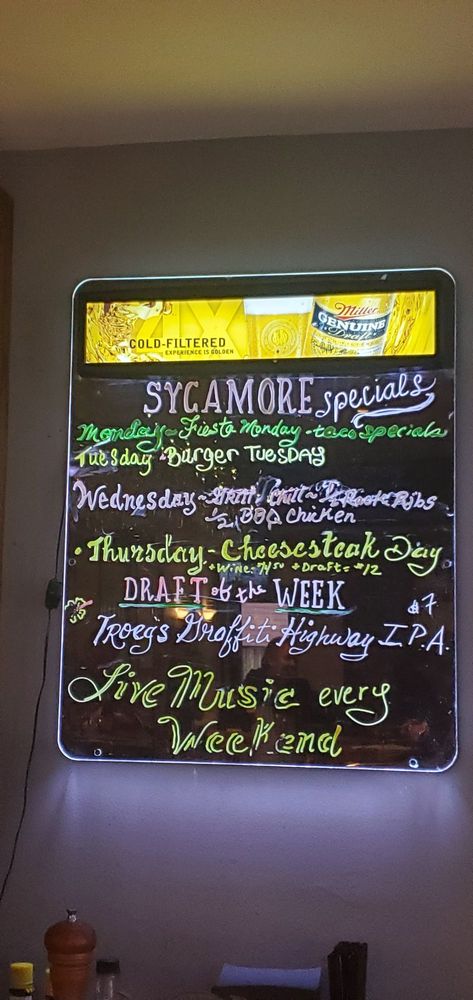 COLD-FILTERED
EXPERIENCE IS GOLDEN
Miller
GENUINE
Draft
SYCAMORE specials
Monday ~ Fiesta Monday - taco specials
Tuesday Burger TUESDAY
Wednesday ~ Grill Ribs
1/2 BBQ Chicken
• Thursday - Cheesesteak Day
+ Wine + Draft = $12
DRAFT of the WEEK $7
Troegs Graffiti Highway I.P.A.
Live Music every
Weekend